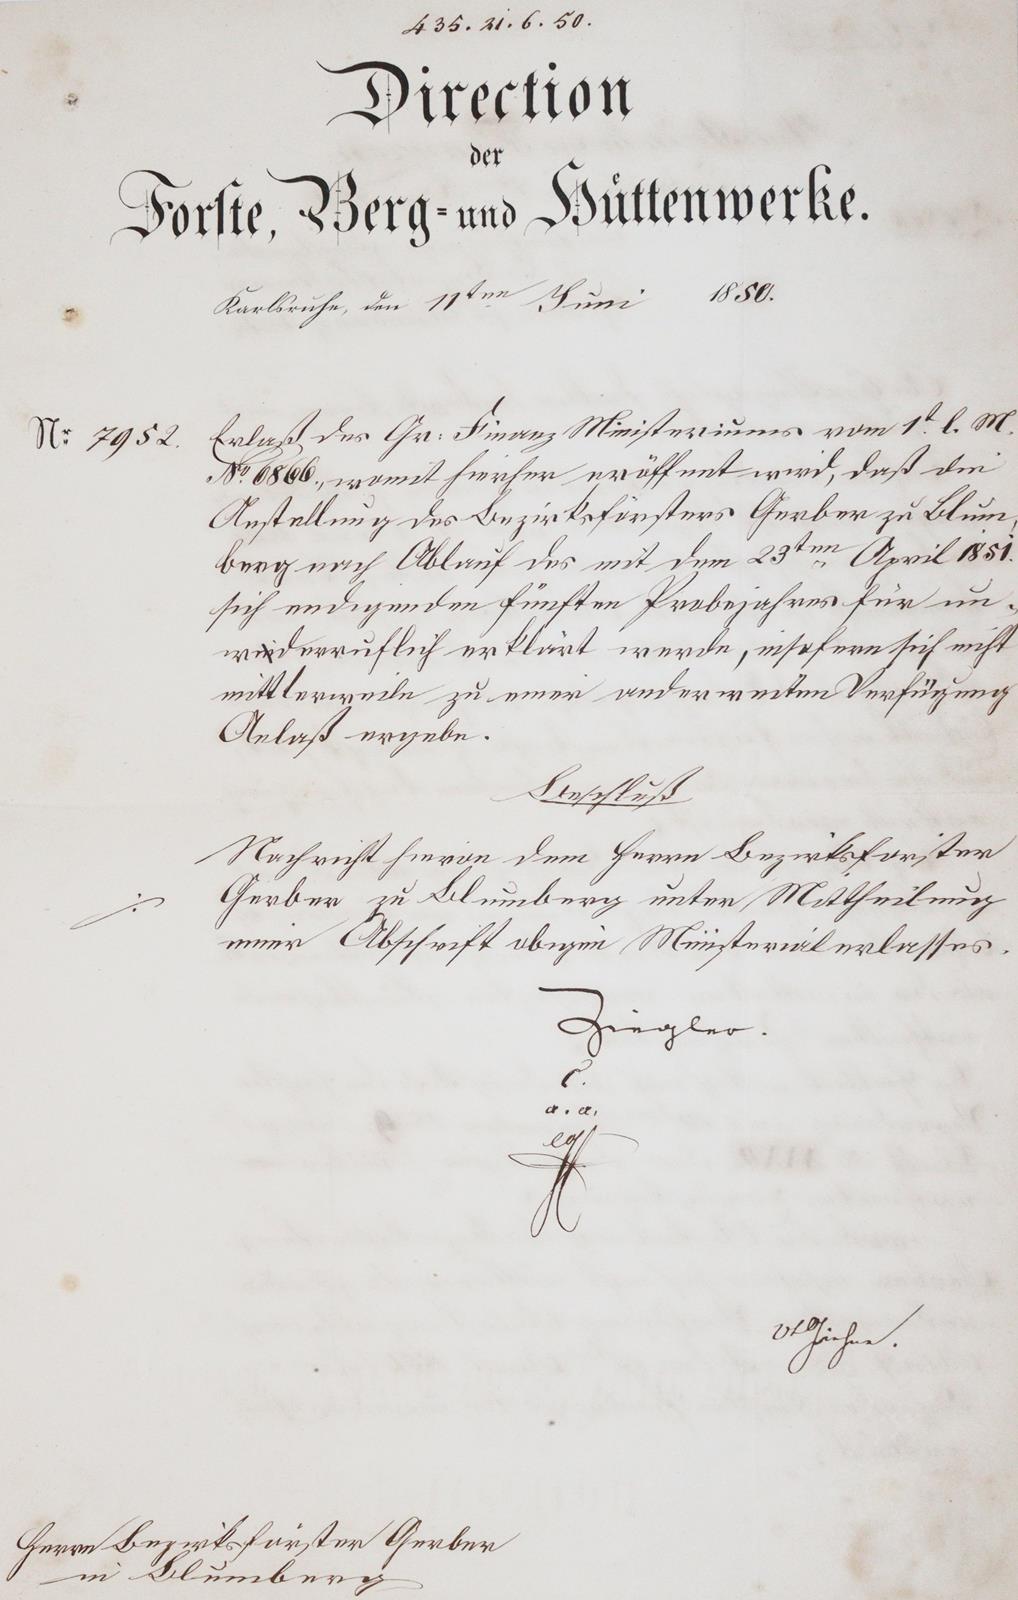 435. 21. 6. 50.
Direction
der
Forste, Berg- und Hüttenwerke.
Karlsruhe, den 11ten Juni 1850.
Nr. 7952. Erlaß des Gr: Finanz Ministeriums vom 1t. l. M.
No. 6866., womit hierher eröffnet wird, daß die
Anstellung des Bezirksförsters Gerber zu Blum-
berg nach Ablauf des mit dem 23ten April 1851.
sich endigenden fünften Probejahres für un-
widerruflich erklärt werde, insofern sich nicht
mittlerweile zu einer anderweiten Verfügung
Anlaß ergebe.
Beschluß
Nachricht hievon dem Herrn Bezirksförster
Gerber zu Blumberg unter Mittheilung
einer Abschrift obigen Ministerialerlasses.
Ziegler.
C.
a. a.
vt
Herrn Bezirksförster Gerber
in Blumberg